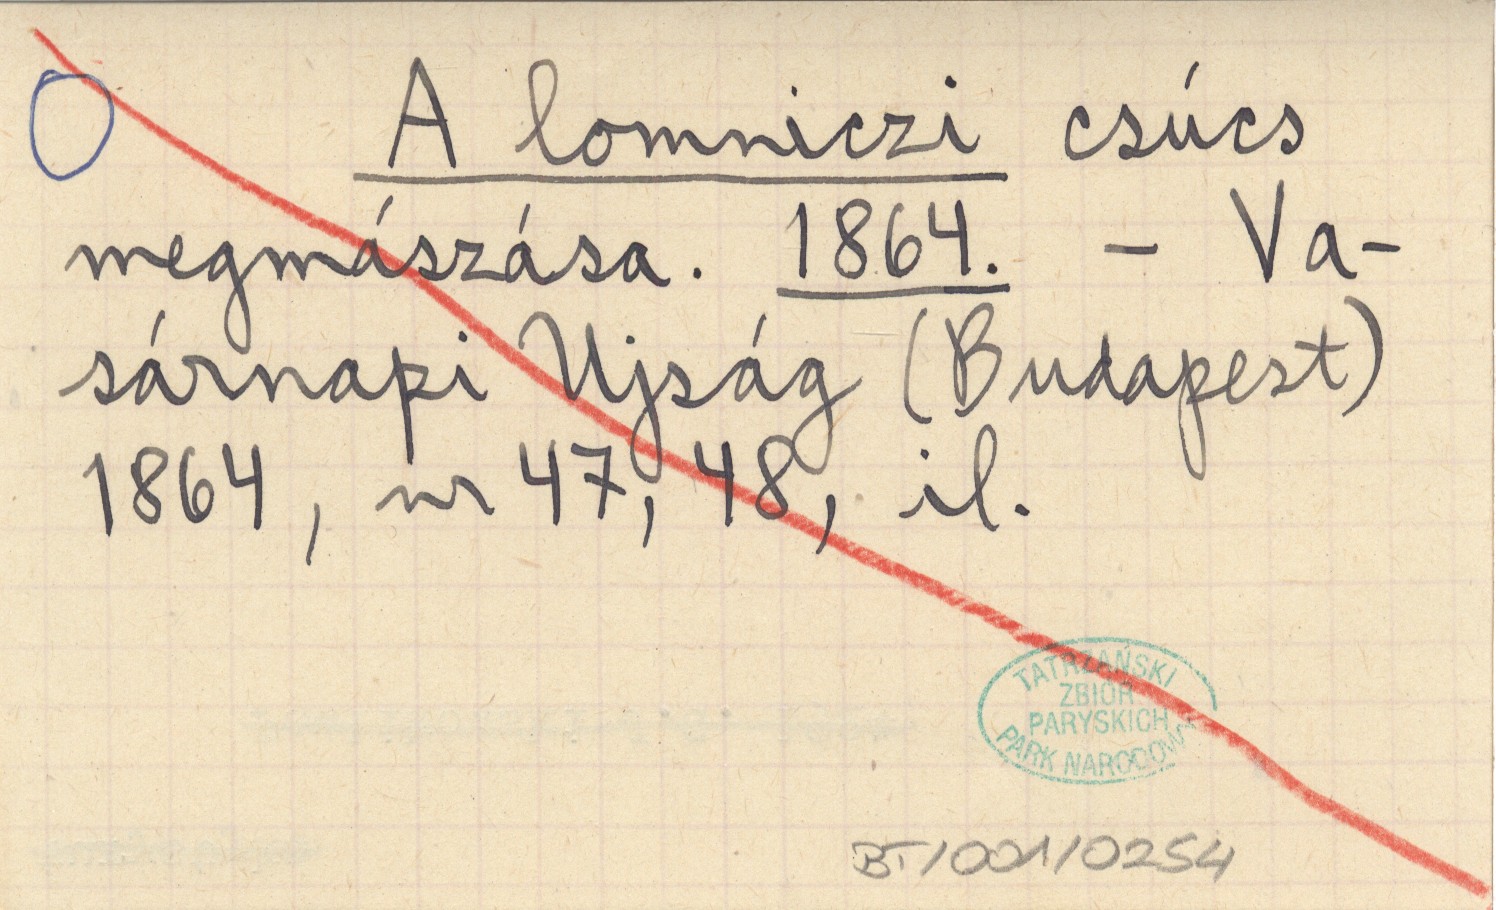 A lomniczi csúcs
megmászása. 1864. – Va-
sárnapi Ujság (Budapest)
1864, nr 47, 48, il.
TATRZAŃSKI
ZBIÓR
PARYSKICH
PARK NARODOWY
BT/001/0254